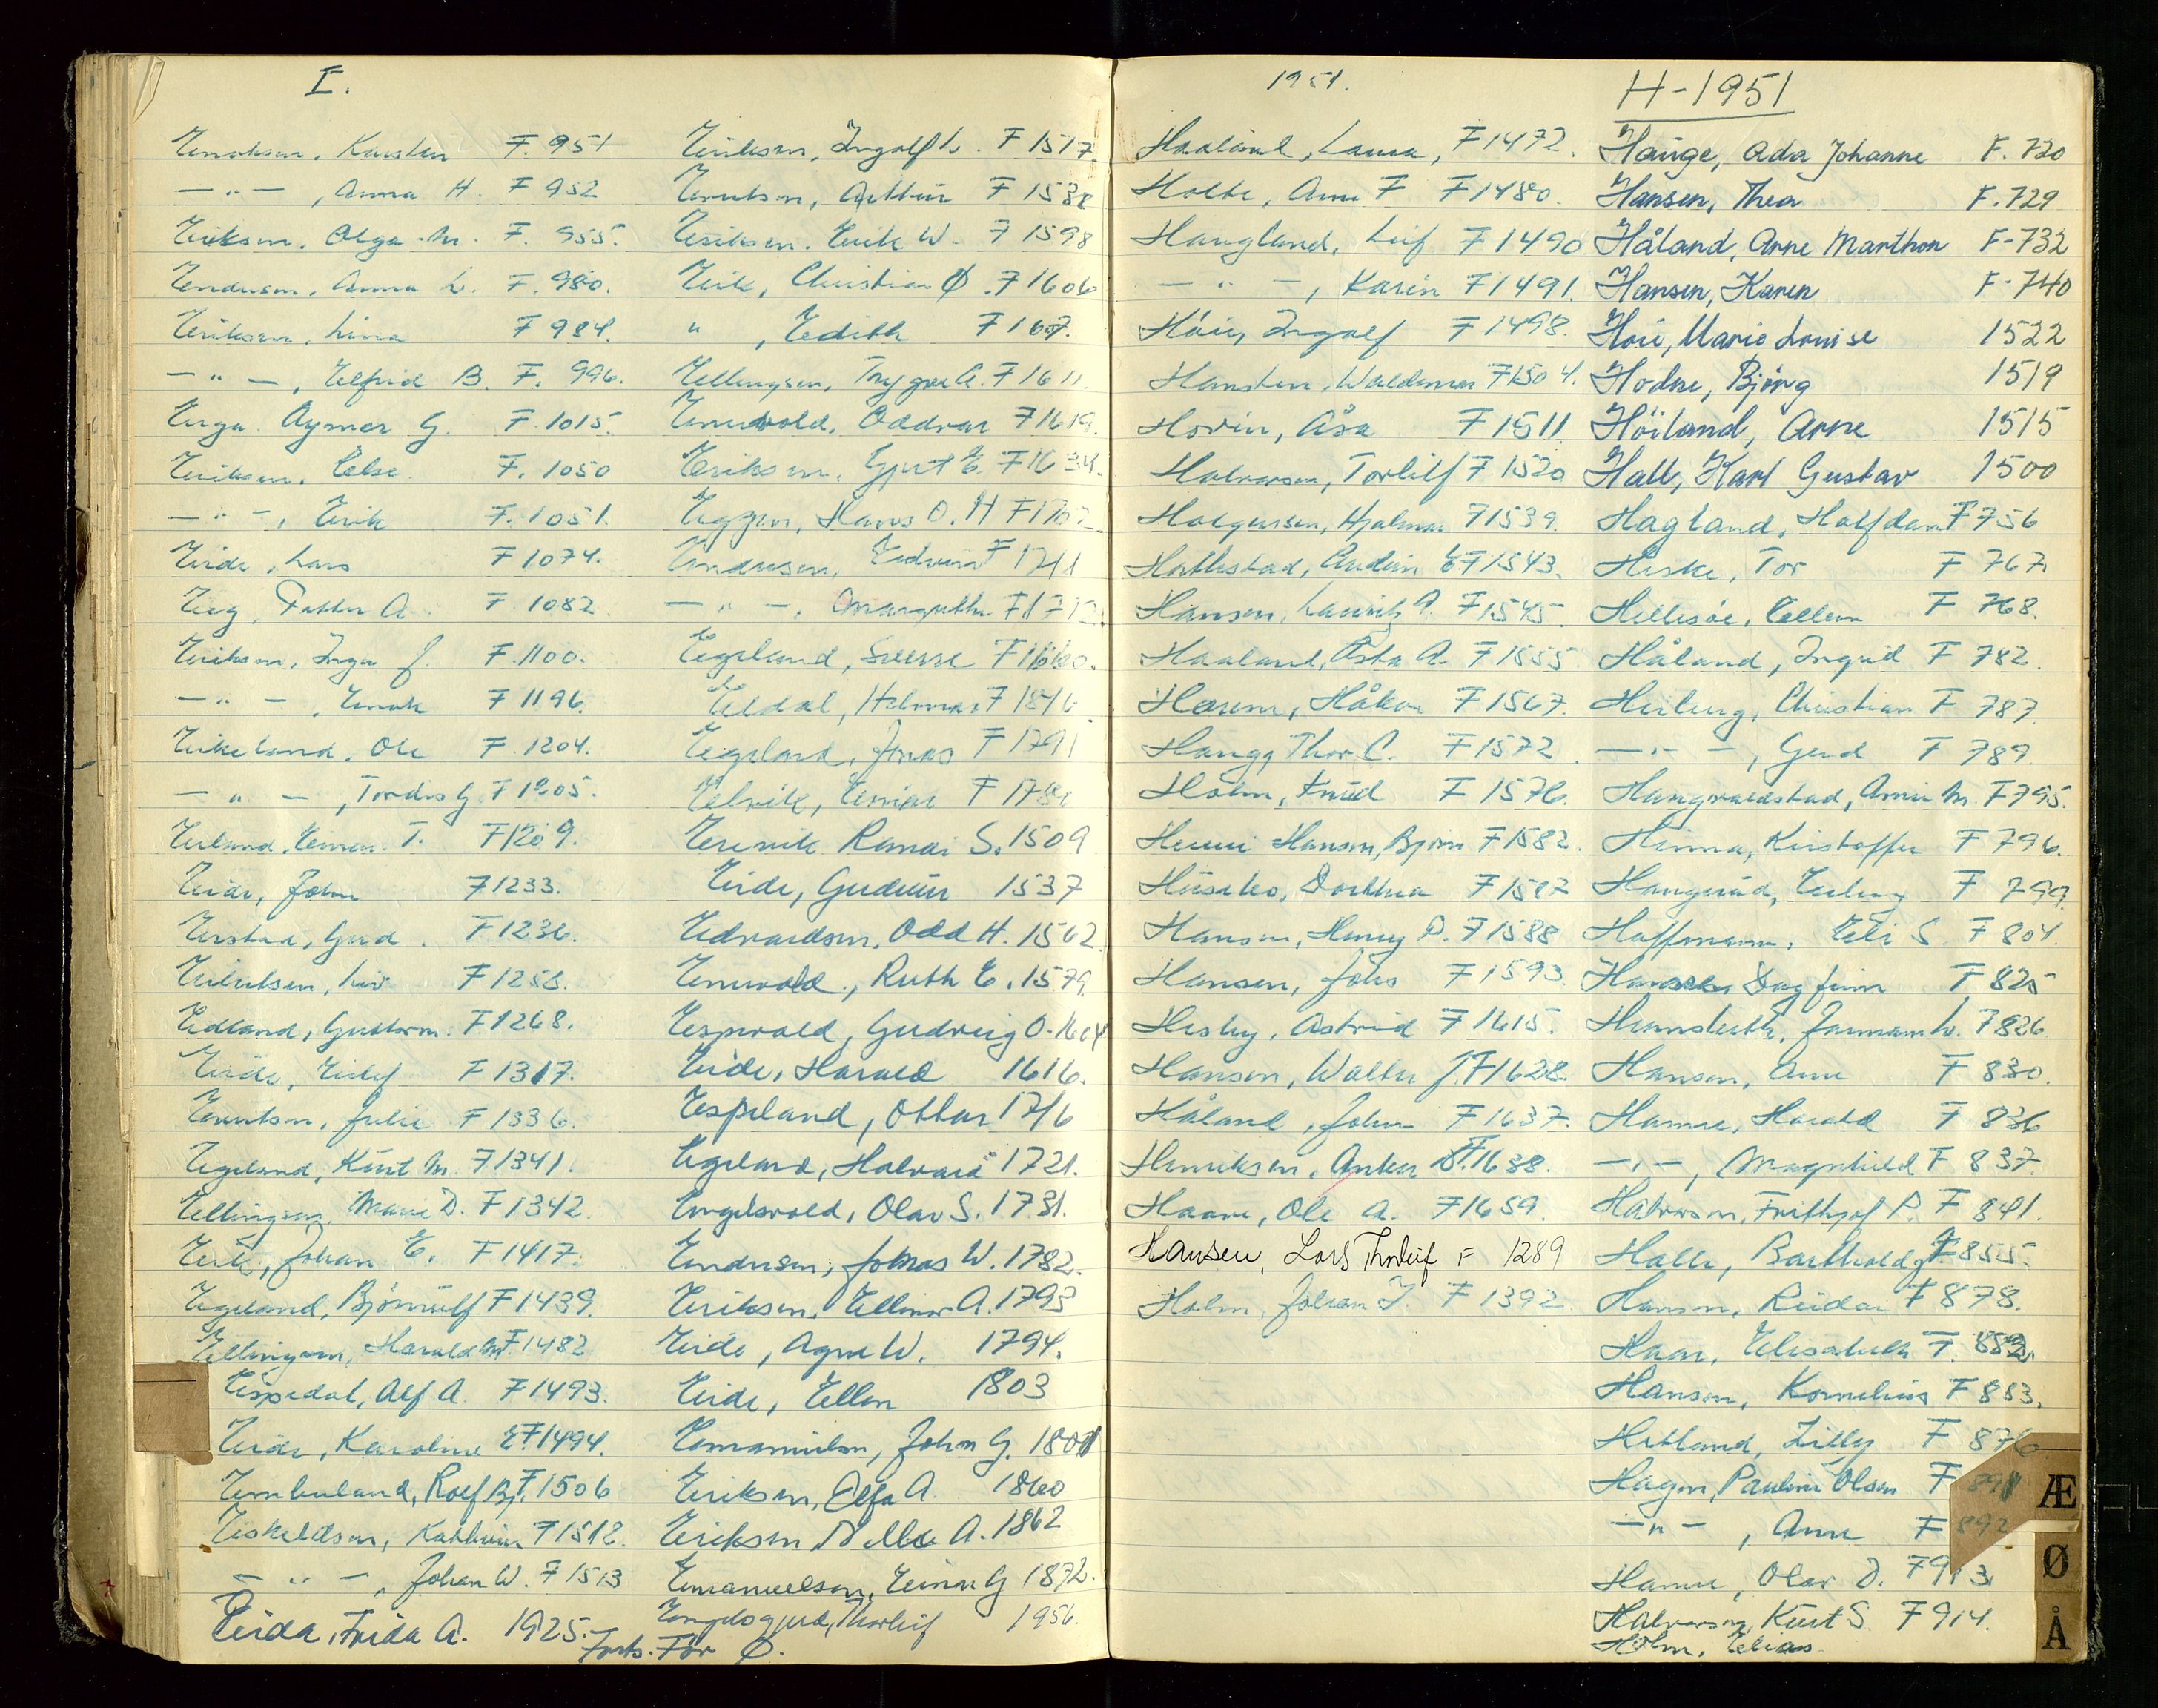 I.
Enoksen, Karsten F. 951
— " — , Anna H. F 952
Eriksen, Olga M. F. 955.
Endresen, Anna L. F. 980.
Eriksen, Lina F 984.
— " — , Elfrid B. F. 996.
Erga, Aymar G. F. 1015.
Eriksen, Else F. 1050
— " — , Erik F. 1051.
Eide, Lars F 1074.
Eeg, Petter A. F. 1082
Eriksen, Inga J. F. 1100.
— " — , Enok F 1196.
Eikeland, Ole F. 1204.
— " — , Tordis G F 1205.
Erland, Einar T. F1209.
Eide, John F1233.
Erstad, Gerd. F1236.
Eilertsen, Liv F1258.
Edland, Guttorm. F1268.
Eide, Eilef F 1317.
Evertsen, Julie F 1336.
Egeland, Kurt M. F1341.
Ellingsen, Marie D. F 1342.
Eik, Johan E. F1417.
Egeland, Bjørnulf F 1439.
Ellingsen, Harald M. F1482
Espedal, Alf A. F1493.
Eide, Karoline E. F1494.
Emberland, Rolf Bj. F.1506
Eskeldsen, Kathrine F1512.
— " — , Johan W. F 1513
Eida, Frida A. 1925.
Eriksen, Ingolf L. F 1517
Evertsen, Arthur F 1538
Eriksen, Erik W. F 1598
Eik, Christian Ø. F1606
" , Edith F 1607.
Ellingsen, Trygve A. F 1611.
Enevold, Oddvar F1619.
Eriksen, Gjert E. F1634.
Eggen, Hans O. H F1702
Endresen, Edvin F 1711
— " — , Margrethe F1712.
Egeland, Sverre F1660.
Eldal, Helmer F 1816
Egeland, Jonas F 1791
Elvik, Einar F 178
Erevik Randi S. 1509
Eide, Gudrun 1537
Edvardsen, Odd H. 1562
Enevold, Ruth E. 1579.
Espevold, Gudveig O. 1604
Eide, Harald 1616.
Espeland, Ottar 1716
Egeland, Halvard 1721.
Engelsvold, Olav S. 1731.
Endresen, Johas W. 1782.
Eriksen, Ellinor A. 1793
Eide, Agne W. 1794.
Eide, Ellen 1803
Emanuelsen, John G. 1801
Eriksen, Elfa A. 1860
Eriksen Nelle A. 1862
Emanuelsen, Einar G 1872.
Engelsgjerd, Thorleif 1956.
Forts. Før Ø.
1951.
Haaland, Laura, F1472.
Holte, Arne F F1480.
Haugland, Leif F1490
— " — , Karin F1491.
Høie, Ingolf F1498.
Hansten, Waldemar F1504.
Hovin, Åsa F1511
Halvorsen, Torleif F 1520
Holgersen, Hjalmar F1539.
Hattestad, Audun E. F1543.
Hansen, Lauritz A. F1545.
Haaland, Åsta A. F1555
Harem, Håkon F1567.
Haugg Thor C. F1572.
Holm, Knud F 1576.
Heum Hansen, Bjørn F1582.
Husebø, Dorthea F1587
Hansen, Henry P. F1588
Hansen, Johs F 1593
Hesby, Astrid F 1615.
Hansen, Walter J. F1628.
Håland, John F 1637.
Henriksen, Anker D. F.1638.
Haave, Ole A. F1659.
Hansen, Lars Thorleif F 1289
Holm, Johan J. F 1392
H-1951
Hauge, Ada Johanne F. 720
Hansen, Thea F. 729
Håland, Arne Marthon F-732
Hansen, Karen F-740
Høie, Marie Louise 1522
Hodne, Bjørg 1519
Höiland, Arne 1515
Hall, Karl Gustav 1500
Hagland, Halfdan F 756
Heske, Tor F 767
Hellesøe, Ellen F 768.
Håland, Ingrid F 782.
Heiberg, Christian F 787.
— " — , Gerd F 789
Haugvaldstad, Arne M. F795.
Hinna, Kristoffer F 796.
Haugerud, Erling F 799.
Hoffmann, Elli S. F 804.
Hansen Dagfinn F 825
F826
Hansen, Arne F 830.
Hamre, Harald F 836
— " — , Magnhild F 837.
Halvorsen, Frithjof P. F 841.
Halle, Barthold G. F855.
Hansen, Reidar F 878.
Haar, Elisabeth F. 882
Hansen, Kornelius F 883.
Hetland, Lilly F 876
Hagen, Pauline Olsen F 891
— " — , Anne F 892
Hamre, Olav D. F 913
Halvorsen, Kurt S. F 914.
Holm, Elias
Æ
Ø
Å